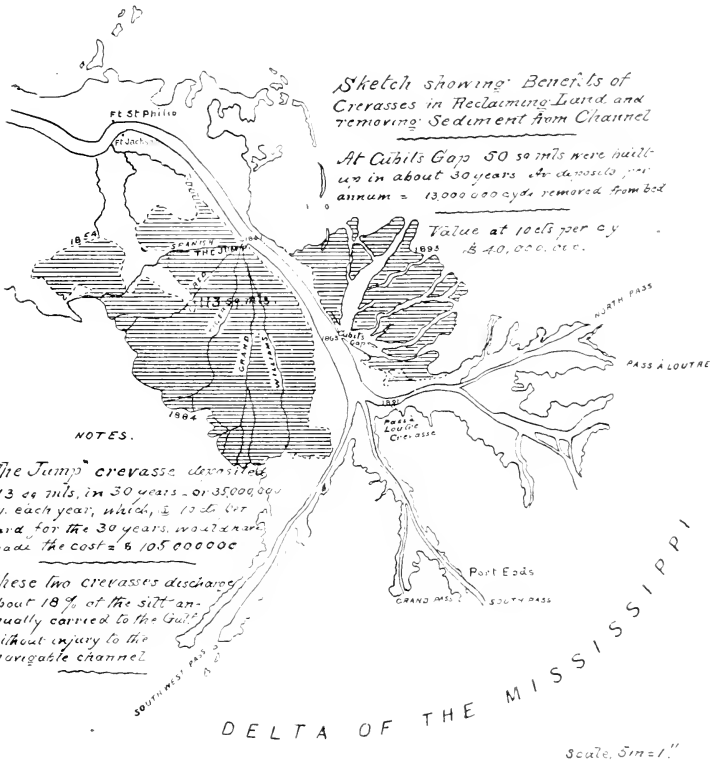 Sketch showing Benefits of
Crevasses in Reclaiming Land and
removing Sediment from Channel
At Cubits Gap 50 sq mls were built
up in about 30 years Av deposits per
annum = 13,000 000 cyds removed from bed
Value at 10 cts per cy
$ 40,000,000.
Ft St Philip
Ft Jackson
1854
SPANISH
THE JUMP
113 sq. mls
GRAND
WILLIAMS
1884
1893
Cubits
Gap
1891
Pass à
Loutre
Crevasse
NORTH PASS
PASS À LOUTRE
Port Eads
GRAND PASS
SOUTH PASS
SOUTHWEST PASS
NOTES.
he Jump" crevasse deposited
13 sq mls, in 30 years - or 35,000,000
each year, which, @ 10 cts per
ard for the 30 years, would have
ade the cost = $ 105 000000
hese two crevasses discharge
bout 18 % of the silt an-
nually carried to the Gulf
ithout injury to the
avigable channel
DELTA OF THE MISSISSIPPI
Scale, 5m=1".